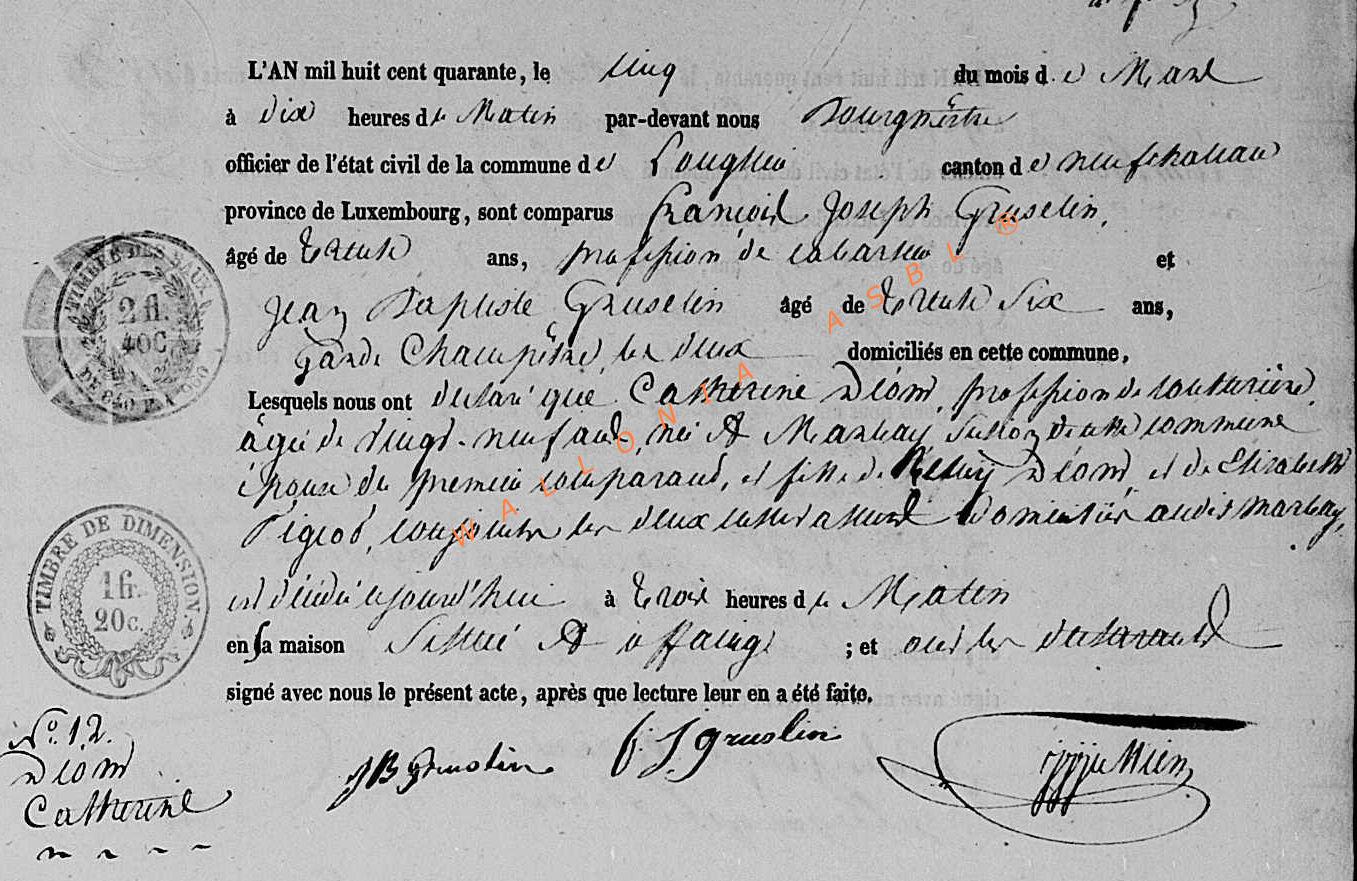 L'AN mil huit cent quarante, le cinq du mois de Mars
à dix heures du Matin par-devant nous Bourgmêtre
officier de l'état civil de la commune de Longlier canton de neufchateau
province de Luxembourg, sont comparus françois Joseph Gruselin,
âgé de trente ans, profession de cabartier et
Jean Baptiste Gruselin âgé de trente Six ans,
Garde Champêtre, les deux domiciliés en cette commune,
Lesquels nous ont declaré que Catherine Diom, profession de couturière,
âgée de vingt-neuf ans, née A Marbay, Section de cette commune
épouse du premier comparant, et fille de Remy Diom, et de Elizabeth
Pigeot, conjoints les deux domiciliés audit Marbay,
est décédée cejourd'hui à trois heures du Matin
en sa maison Située A offaing ; et ont les declarants
signé avec nous le présent acte, après que lecture leur en a été faite.
JB gruslin f. J gruslin
No. 12.
Diom
Catherine
TIMBRE DES
2 fl.
40C
TIMBRE DE DIMENSION
1 fr.
20c.
WALLONIA ASBL ®